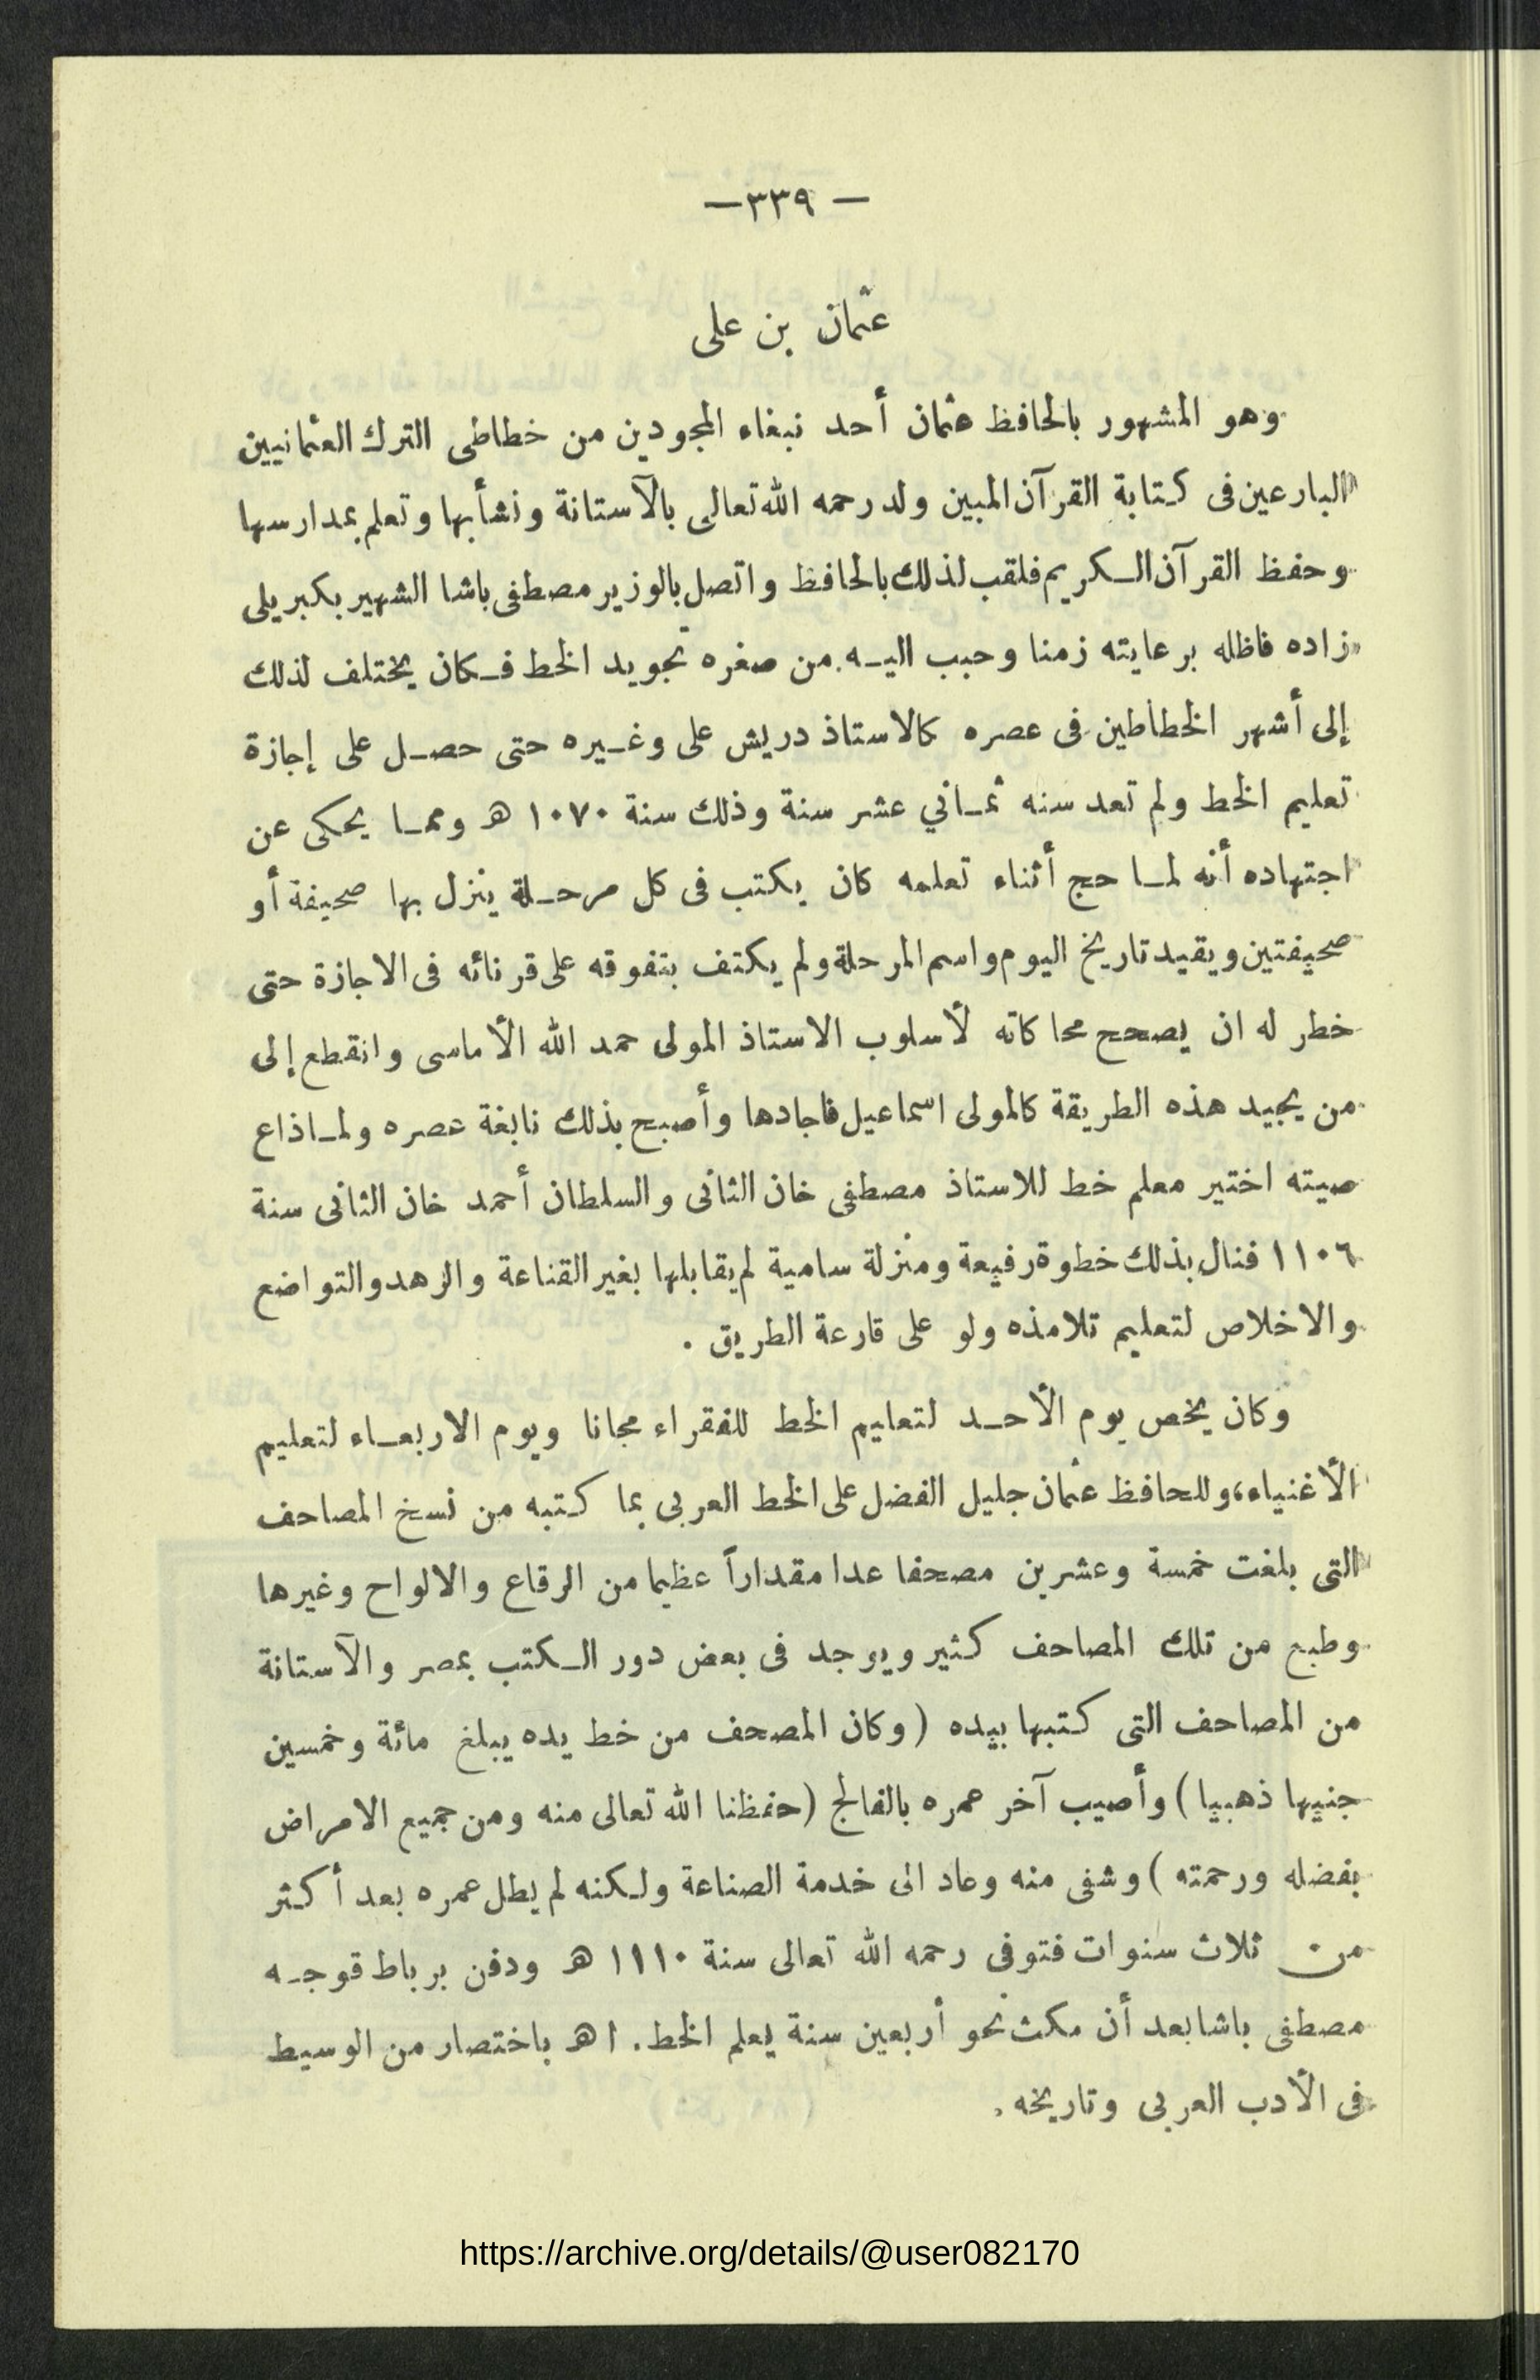 — ٣٣٩ —
عثمان بن على
وهو المشهور بالحافظ عثمان أحد نبغاء المجودين من خطاطى الترك العثمانيين
البارعين فى كتابة القرآن المبين ولد رحمه الله تعالى بالآستانة ونشأ بها وتعلم بمدارسها
وحفظ القرآن الكريم فلقب لذلك بالحافظ واتصل بالوزير مصطفى باشا الشهير بكبريلى
زاده فاظله برعايته زمنا وحبب اليه من صغره تجويد الخط فكان يختلف لذلك
إلى أشهر الخطاطين فى عصره كالاستاذ دريش على وغيره حتى حصل على إجازة
تعليم الخط ولم تعد سنه ثماني عشر سنة وذلك سنة ١٠٧٠ هـ ومما يحكى عن
اجتهاده أنه لما حج أثناء تعلمه كان يكتب فى كل مرحلة ينزل بها صحيفة أو
صحيفتين ويقيد تاريخ اليوم واسم المرحلة ولم يكتف بتفوقه على قرنائه فى الاجازة حتى
خطر له ان يصحح محاكاته لأسلوب الاستاذ المولى حمد الله الأماسى وانقطع إلى
من يجيد هذه الطريقة كالمولى اسماعيل فاجادها وأصبح بذلك نابغة عصره ولما ذاع
صيته اختير معلم خط للاستاذ مصطفى خان الثانى والسلطان أحمد خان الثانى سنة
١١٠٦ فنال بذلك خطوة رفيعة ومنزلة سامية لم يقابلها بغير القناعة والزهد والتواضع
والاخلاص لتعليم تلامذه ولو على قارعة الطريق .
وكان يخص يوم الأحد لتعليم الخط للفقراء مجانا ويوم الاربعاء لتعليم
الأغنياء، وللحافظ عثمان جليل الفضل على الخط العربى بما كتبه من نسخ المصاحف
التى بلغت خمسة وعشرين مصحفا عدا مقداراً عظيما من الرقاع والالواح وغيرها
وطبع من تلك المصاحف كثير ويوجد فى بعض دور الكتب بمصر والآستانة
من المصاحف التى كتبها بيده (وكان المصحف من خط يده يبلغ مائة وخمسين
جنيها ذهبيا) وأصيب آخر عمره بالفالج (حفظنا الله تعالى منه ومن جميع الامراض
بفضله ورحمته) وشفى منه وعاد الى خدمة الصناعة ولكنه لم يطل عمره بعد أكثر
من ثلاث سنوات فتوفى رحمه الله تعالى سنة ١١١٠ هـ ودفن برباط قوجه
مصطفى باشا بعد أن مكث نحو أربعين سنة يعلم الخط. ا هـ باختصار من الوسيط
فى الأدب العربى وتاريخه.
https://archive.org/details/@user082170